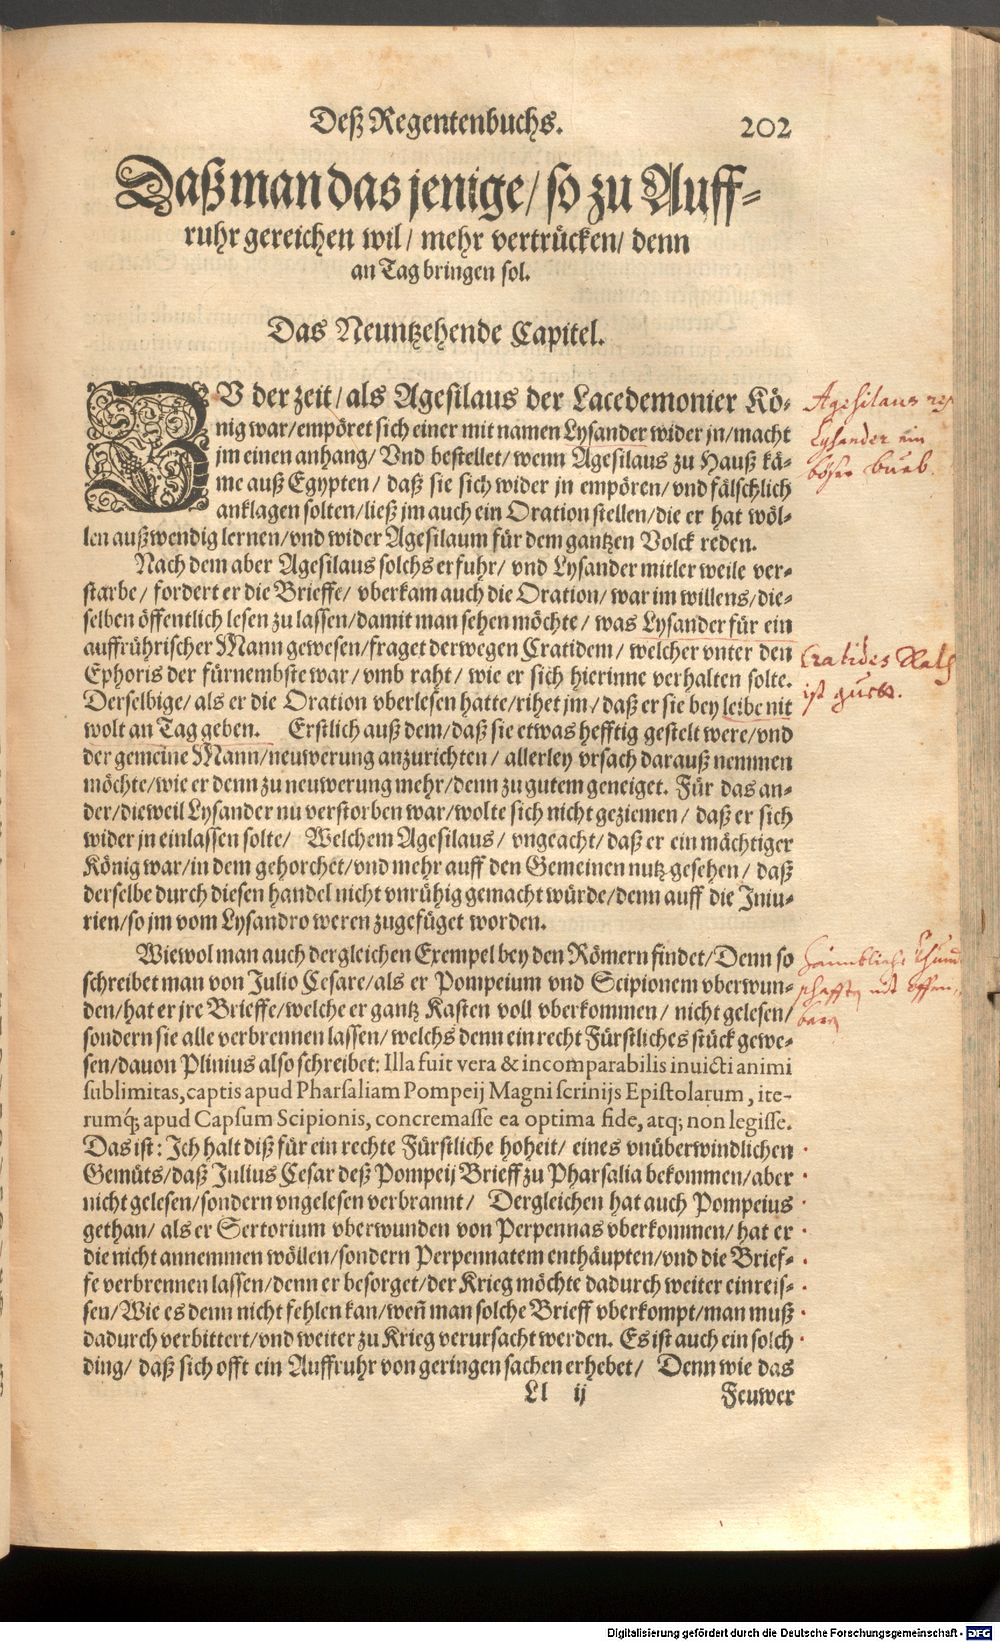 Deß Regentenbuchs. 202
Daß man das jenige/ so zu Auff-
ruhr gereichen wil/ mehr vertrücken/ denn
an Tag bringen sol.
Das Neuntzehende Capitel.
ZV der zeit/ als Agesilaus der Lacedemonier Kö-
nig war/empöret sich einer mit namen Lysander wider jn/macht
jm einen anhang/ Vnd bestellet/ wenn Agesilaus zu Hauß kä-
me auß Egypten/ daß sie sich wider jn empören/ vnd fälschlich
anklagen solten/ließ jm auch ein Oration stellen/die er hat wöl-
len außwendig lernen/vnd wider Agesilaum für dem gantzen Volck reden.
Nach dem aber Agesilaus solchs erfuhr/ vnd Lysander mitler weile ver-
starbe/ fordert er die Brieffe/ vberkam auch die Oration/ war im willens/die-
selben öffentlich lesen zu lassen/damit man sehen möchte/ was Lysander für ein
auffrührischer Mann gewesen/fraget derwegen Cratidem/ welcher vnter den
Ephoris der fürnembste war/ vmb raht/ wie er sich hierinne verhalten solte.
Derselbige/ als er die Oration vberlesen hatte/rihet jm/ daß er sie bey leibe nit
wolt an Tag geben. Erstlich auß dem/daß sie etwas hefftig gestelt were/vnd
der gemeine Mann/neuwerung anzurichten/ allerley vrsach darauß nemmen
möchte/wie er denn zu neuwerung mehr/denn zu gutem geneiget. Für das an-
der/dieweil Lysander nu verstorben war/wolte sich nicht geziemen/ daß er sich
wider jn einlassen solte/ Welchem Agesilaus/ vngeacht/daß er ein mächtiger
König war/in dem gehorchet/vnd mehr auff den Gemeinen nutz gesehen/ daß
derselbe durch diesen handel nicht vnrühig gemacht würde/denn auff die Iniu-
rien/so jm vom Lysandro weren zugefüget worden.
Wiewol man auch dergleichen Exempel bey den Römern findet/Denn so
schreibet man von Julio Cesare/als er Pompeium vnd Scipionem vberwun-
den/hat er jre Brieffe/welche er gantz Kasten voll vberkommen/ nicht gelesen/
sondern sie alle verbrennen lassen/ welchs denn ein recht Fürstliches stück gewe-
sen/dauon Plinius also schreibet: Illa fuit vera & incomparabilis inuicti animi
sublimitas, captis apud Pharsaliam Pompeij Magni scrinijs Epistolarum, ite-
rumq́; apud Capsum Scipionis, concremasse ea optima fide, atq; non legisse.
Das ist: Ich halt diß für ein rechte Fürstliche hoheit/ eines vnüberwindlichen
Gemüts/daß Julius Cesar deß Pompeij Brieff zu Pharsalia bekommen/aber
nicht gelesen/sondern vngelesen verbrannt/ Dergleichen hat auch Pompeius
gethan/ als er Sertorium vberwunden von Perpennas vberkommen/ hat er
die nicht annemmen wöllen/sondern Perpennatem enthäupten/vnd die Brief-
fe verbrennen lassen/denn er besorget/der Krieg möchte dadurch weiter einreis-
sen/Wie es denn nicht fehlen kan/weñ man solche Brieff vberkompt/man muß
dadurch verbittert/vnd weiter zu Krieg verursacht werden. Es ist auch ein solch
ding/ daß sich offt ein Auffruhr von geringen sachen erhebet/ Denn wie das
Ll ij Feuwer
Agesilaus
Lysander ein
böser bueb.
Cratides Rath
ist guet.
Digitalisierung gefördert durch die Deutsche Forschungsgemeinschaft - DFG